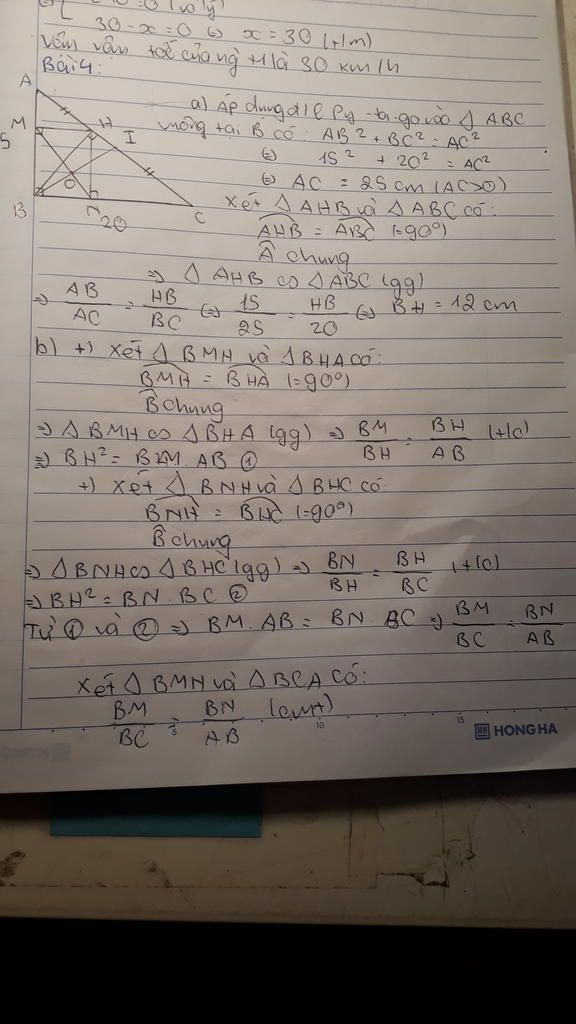 30-x=0 (=) x = 30 (t/m)
Vậy vận tốc của ng` đi là 30 km/h
Bài 4:
A
M
H
I
15
O
B
N
20
C
a) Áp dụng đ/l Py-ta-go vào Δ ABC
vuông tại B có: AB² + BC² = AC²
(=) 15² + 20² = AC²
(=) AC = 25 cm (AC>0)
Xét Δ AHB và Δ ABC có:
AHB = ABC (=90°)
Â chung
=> Δ AHB ∽ Δ ABC (gg)
=> AB/AC = HB/BC (=) 15/25 = HB/20 (=) BH = 12 cm
b) +) Xét Δ BMH và Δ BHA có:
BMH = BHA (=90°)
B̂ chung
=> Δ BMH ∽ Δ BHA (gg) => BM/BH = BH/AB (t/c)
=> BH² = BM. AB ①
+) Xét Δ BNH và Δ BHC có:
BNH = BHC (=90°)
B̂ chung
=> Δ BNH ∽ Δ BHC (gg) => BN/BH = BH/BC (t/c)
=> BH² = BN. BC ②
Từ ① và ② => BM. AB = BN. BC => BM/BC = BN/AB
Xét Δ BMN và Δ BCA có:
BM/BC = BN/AB (cmt)
5 10 15
HH HONG HA